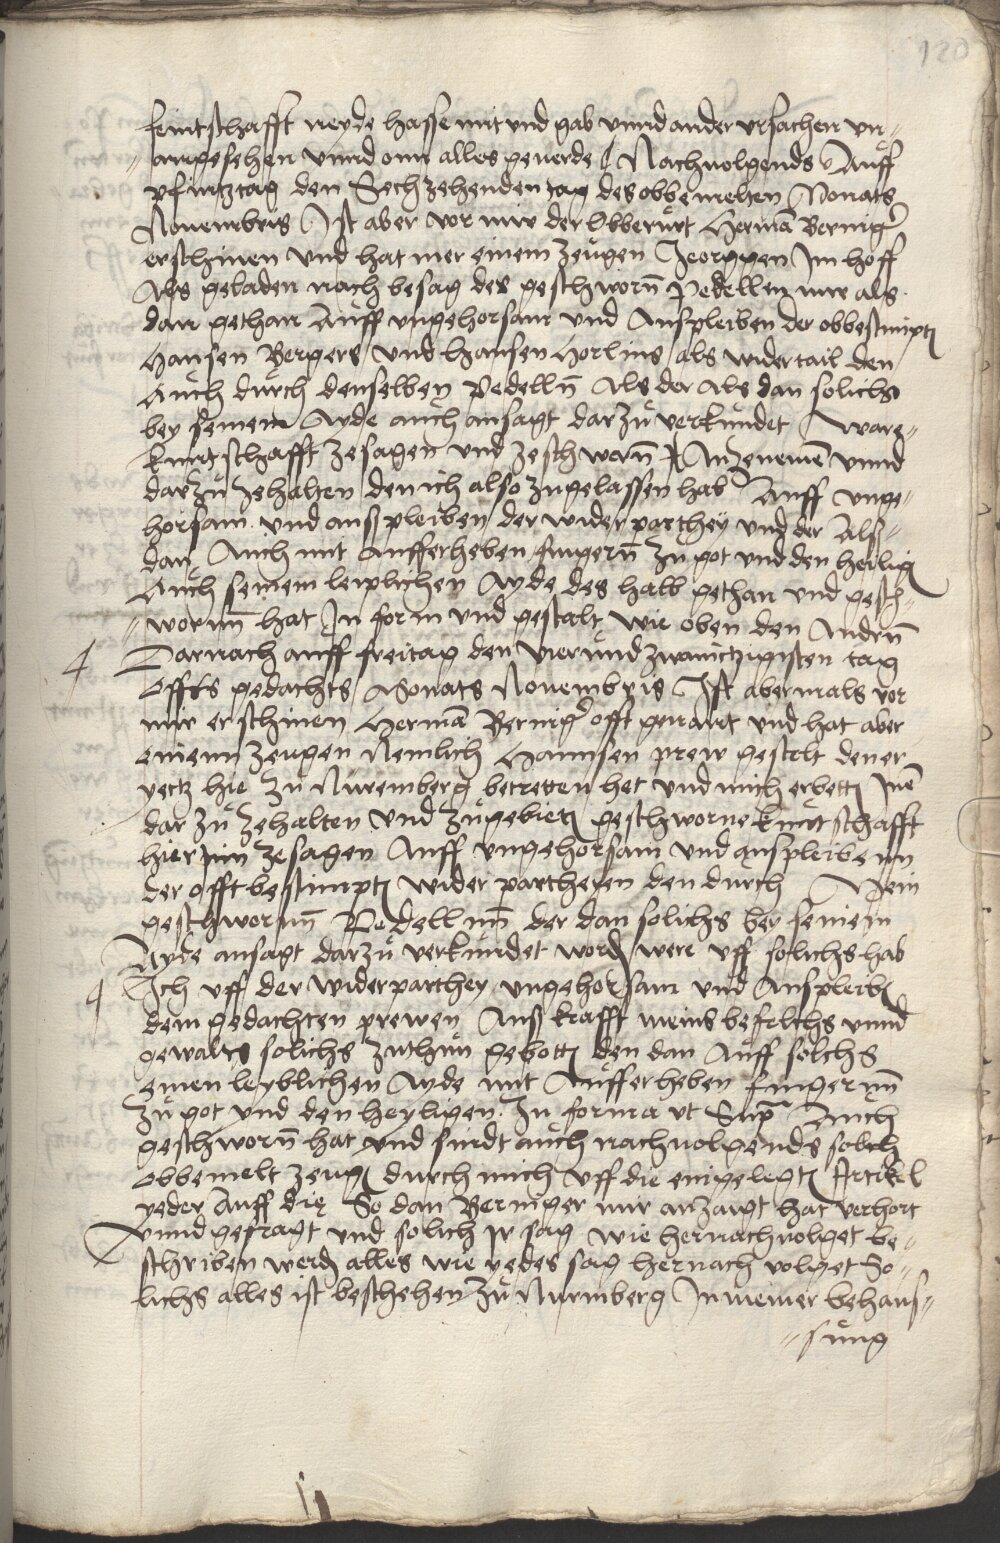 120
feintschafft neyde hasse mit und gab unnd ander ursachen un-
-angesehen unnd onn alles geuerde / Nachuolgends Auff
pfintztag den Sechzehenden tag des obbemelten Monats
Nouembris Ist aber vor mir der Obberurt Herman Berniger
erschinen und hat mer einem zeugen Jeorgen Im hoff
Als geladen nach besag des geschworn Pedellen mir als
dan gethan Auff ungehorsam und Auspleiben der obbestimpten
Hansen Bergers und hansen Horlins als widertail den
Auch durch denselben Pedelln Als der Als dan solichs
bey seinem Ayde auch ansagt darzu verkundet ware-
kuntschafft zesagen und zeschworn Anzenemen unnd
darzu zehalten den ich also zugelassen hab Auff unge-
horsam und ausspleiben der widerparthey und der Als-
dan Auch mit aufferheben fingern zu got und den heiligen
Auch seinem leiplichen Ayde des halb gethan und gesch-
-wornn hat In form und gestalt wie oben den Andern
Darnach auff freitag den vierundzwaintzigisten tag
offts gedachts Monats Nouembris Ist abermals vor
mir erschinen Herman Berniger offt genant und hat aber
einenn zeugen Nemlich Hannsen prew gestelt den er
yetz hie zu Nuremberg betretten het und mich erbetten Ine
dar zu zehalten und zugebieten geschworne kuntschafft
hier Inn zesagen Auff ungehorsam und auspleibenn
der offtbestimpten wider partheyen den durch Mein
geschwornn Pedellnn der dan solichs bey seinem
Ayde ansagt darzu verkundet worden were uff solichs hab
Ich uff der widerparthey ungehorsam und Auspleiben
dem gedachten prewen Auss krafft meins befelchs unnd
gewalts solichs zuthun gebotten den dan Auff solchs
einen leyblichen Ayde mit Aufferheben fingernn
zu got und den heyligen In forma ut Supra Auch
geschworn hat und sindt auch nachuolgends solch
obbemelt zeugen durch mich uff die eingelegten Artickel
yeder Auff die So dan Berniger mir anzaigt hat verhort
unnd gefragt und solich Ir sag wie hernach volget be-
schriben werden alles wie yedes sag hernach volget So-
lichs alles ist beschehen zu Nurmberg In meiner behaus-
-sung